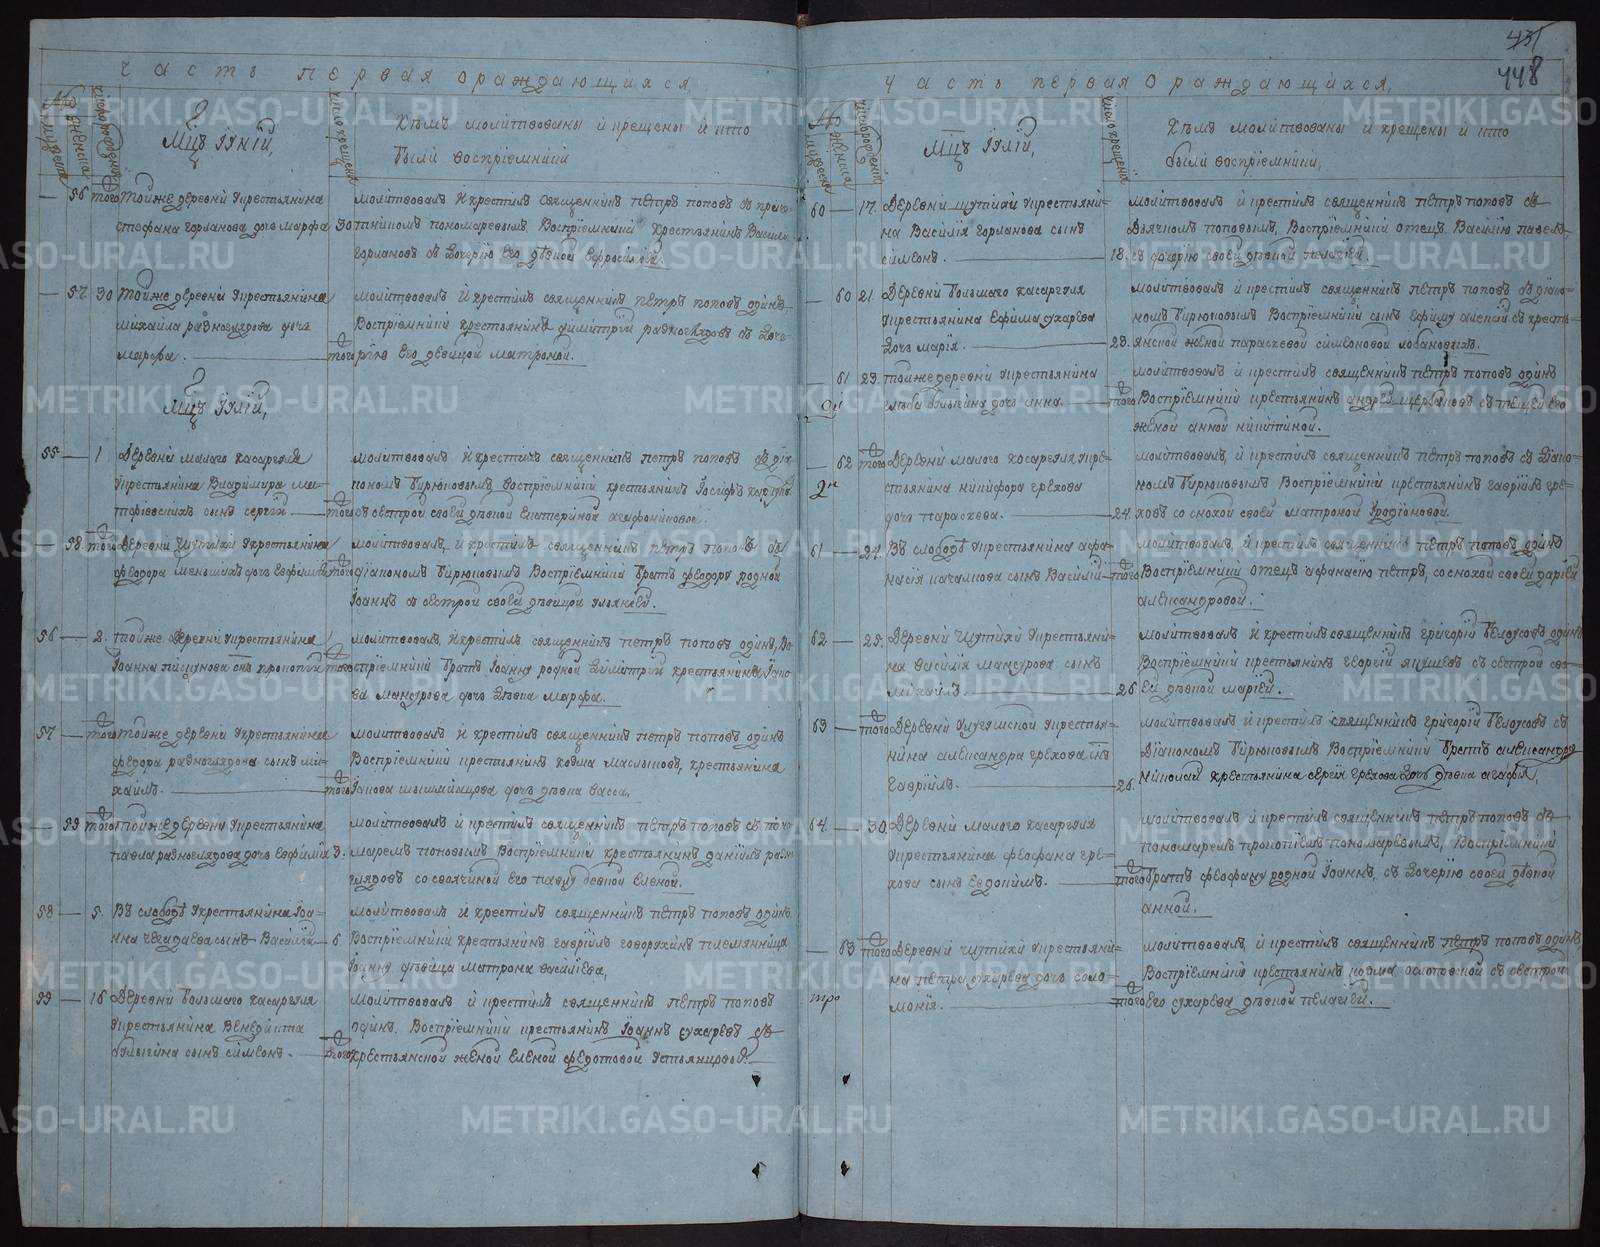 Часть первая о раждающихся,
Мцъ Іюній,
Кѣмъ молитвованы и крещены и кто
были воспріемники
56 того Тойже деревни крестьянина
Стефана Горланова дочь Марфа 30
молитвовалъ и крестилъ священникъ Петръ Поповъ съ
пономаревымъ, Воспріемники крестьянинъ
Горлановъ съ дочерію его дѣвкой
57. 30 Тойже деревни крестьянина
Михайла Разноглядова дочь
Марфа. того
молитвовалъ и крестилъ священникъ Петръ Поповъ одинъ,
Воспріемники крестьянинъ Димитрій Разноглядовъ съ доче-
рію его девицой Матроной.
Мцъ Іулій,
55 1 Деревни Малаго Касаргуля
крестьянина Владимира Ма-
сынъ Сергій того
молитвовалъ и крестилъ священникъ Петръ Поповъ съ діа-
кономъ Бирюковымъ Воспріемники крестьянинъ Іосифъ
съ сестрой своей дѣвкой Екатериной
58. того Деревни Шутихи крестьянина
Феодора Меньшихъ дочь того
молитвовалъ, и крестилъ священникъ Петръ Поповъ съ
діакономъ Бирюковымъ Воспріемники братъ Феодору родной
Іоаннъ съ сестрой своей дѣвицой
56 2. Тойже деревни крестьянина
Іоанна Пицунова снъ Прокопій того
молитвовалъ, и крестилъ священникъ Петръ Поповъ одинъ, Во-
спріемники братъ Іоанну родной Димитрій крестьянина Іако-
ва Мансурова дочь дѣвка Марфа.
57 того Тойже деревни крестьянина
Федора Разноглядова сынъ Ми-
хаилъ. того
молитвовалъ и крестилъ священникъ Петръ Поповъ одинъ
Воспріемники крестьянинъ Козма Маслыковъ, крестьянина
Іакова дочь дѣвка Васса,
59 того Тойже деревни крестьянина
Павла Разноглядова дочь Евфимія 3.
молитвовалъ и крестилъ священникъ Петръ Поповъ съ поно-
маремъ Поповымъ Воспріемники крестьянинъ Даніилъ Разно-
глядовъ со своячиной его Павлу девкой Еленой.
58 5. Въ слободѣ крестьянина Іоа-
нна Чегадаева сынъ Василій 6
молитвовалъ и крестилъ священникъ Петръ Поповъ одинъ
Воспріемники крестьянинъ Гавріилъ Говорухинъ племянница
Іоанну дѣвица Матрона Василіева,
59 16 Деревни Большаго Касаргуля
крестьянина Венедикта
Булыгина сынъ Симеонъ. того
молитвовалъ и крестилъ священникъ Петръ Поповъ
одинъ. Воспріемники крестьянинъ Іоаннъ Сухаревъ съ
крестьянской женой Еленой Федотовой
448
Часть первая о раждающихся,
Мцъ Іулій,
Кѣмъ молитвованы и крещены и кто
были воспріемники,
60 17. Деревни Шутихи крестьяни-
на Василія Горланова сынъ
Симеонъ. 18.
молитвовалъ и крестилъ священникъ Петръ Поповъ съ
дьячкомъ Поповымъ, Воспріемники отецъ Василію Павелъ,
съ дочерію своей дѣвкой Пелагіей.
60 21. Деревни Большаго Касаргуля
крестьянина Ефима Сухарева
дочь Марія. 23.
молитвовалъ и крестилъ священникъ Петръ Поповъ съ діако-
номъ Бирюковымъ Воспріемники сынъ Ефиму Алексій съ кресть-
янской женой Параскевой Симеоновой Лобановыхъ.
61 23. Тойже деревни крестьянина
Глѣба Булыгина дочь Анна. того
молитвовалъ и крестилъ священникъ Петръ Поповъ одинъ
Воспріемники крестьянинъ Андрей Щербаковъ съ тещей его
женой Анной Никитиной.
62 того Деревни Малаго Касаргуля кре-
стьянина Никифора Грехова
дочь Параскева. 24.
молитвовалъ, и крестилъ священникъ Петръ Поповъ съ діако-
номъ Бирюковымъ Воспріемники крестьянинъ Гавріилъ Гре-
ховъ со снохой своей Матроной Іродіоновой.
61 24. Въ слободѣ крестьянина Афа-
насія Качалкова сынъ Василій того
молитвовалъ, и крестилъ священникъ Петръ Поповъ одинъ
Воспріемники отецъ Афанасію Петръ, со снохой своей Дарьей
Александровой.
62 25. Деревни Шутихи крестьяни-
на Василія Мансурова сынъ
Михаилъ 26.
молитвовалъ и крестилъ священникъ Григорій Белоусовъ одинъ
Воспріемники крестьянинъ Георгій Якушевъ съ сестрой сво-
ей дѣвкой Маріей.
63 того Деревни крестья-
нина Александра Грехова снъ
Гавріилъ. 26.
молитвовалъ и крестилъ священникъ Григорій Белоусовъ съ
діакономъ Бирюковымъ Воспріемники братъ Александру
Николай крестьянина Сергія Грехова дочь дѣвка Агафія,
64. 30. Деревни Малаго Касаргуля
крестьянина Феофана Гре-
хова сынъ Евдокимъ. того
молитвовалъ и крестилъ священникъ Петръ Поповъ съ
пономаремъ Прокопіемъ Пономаревымъ, Воспріемники
братъ Феофану родной Іоаннъ, съ дочерію своей дѣвкой
Анной.
63 того Деревни Шутихи крестьяни-
на Петра Сухарева дочь Соло-
монія. того
молитвовалъ, и крестилъ священникъ Петръ Поповъ одинъ,
Воспріемники крестьянинъ Козма съ сестрой
его Сухарева дѣвкой Пелагіей.